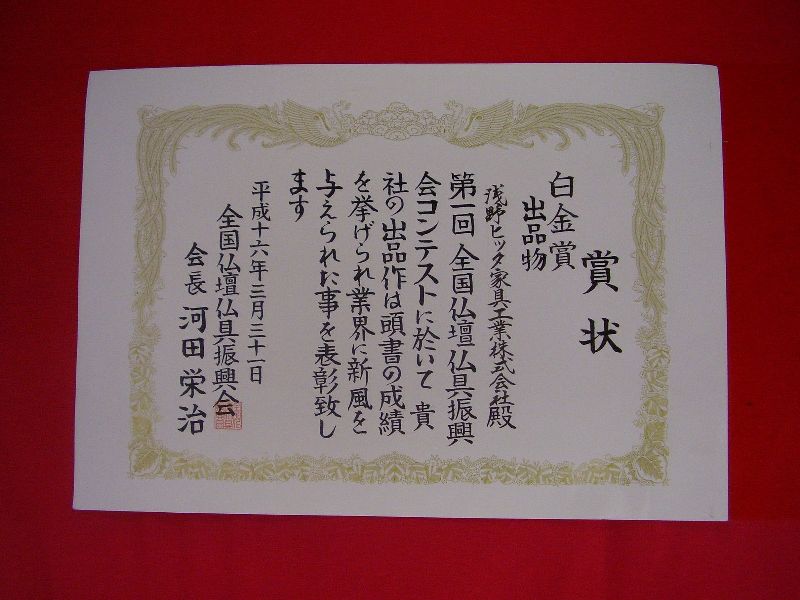 賞状
白金賞
出品物
浅野ヒック家具工業株式会社殿
第一回全国仏壇仏具振興
会コンテストに於いて貴
社の出品作は頭書の成績
を挙げられ業界に新風を
与えられた事を表彰致し
ます
平成十六年三月三十一日
全国仏壇仏具振興会
会長 河田栄治